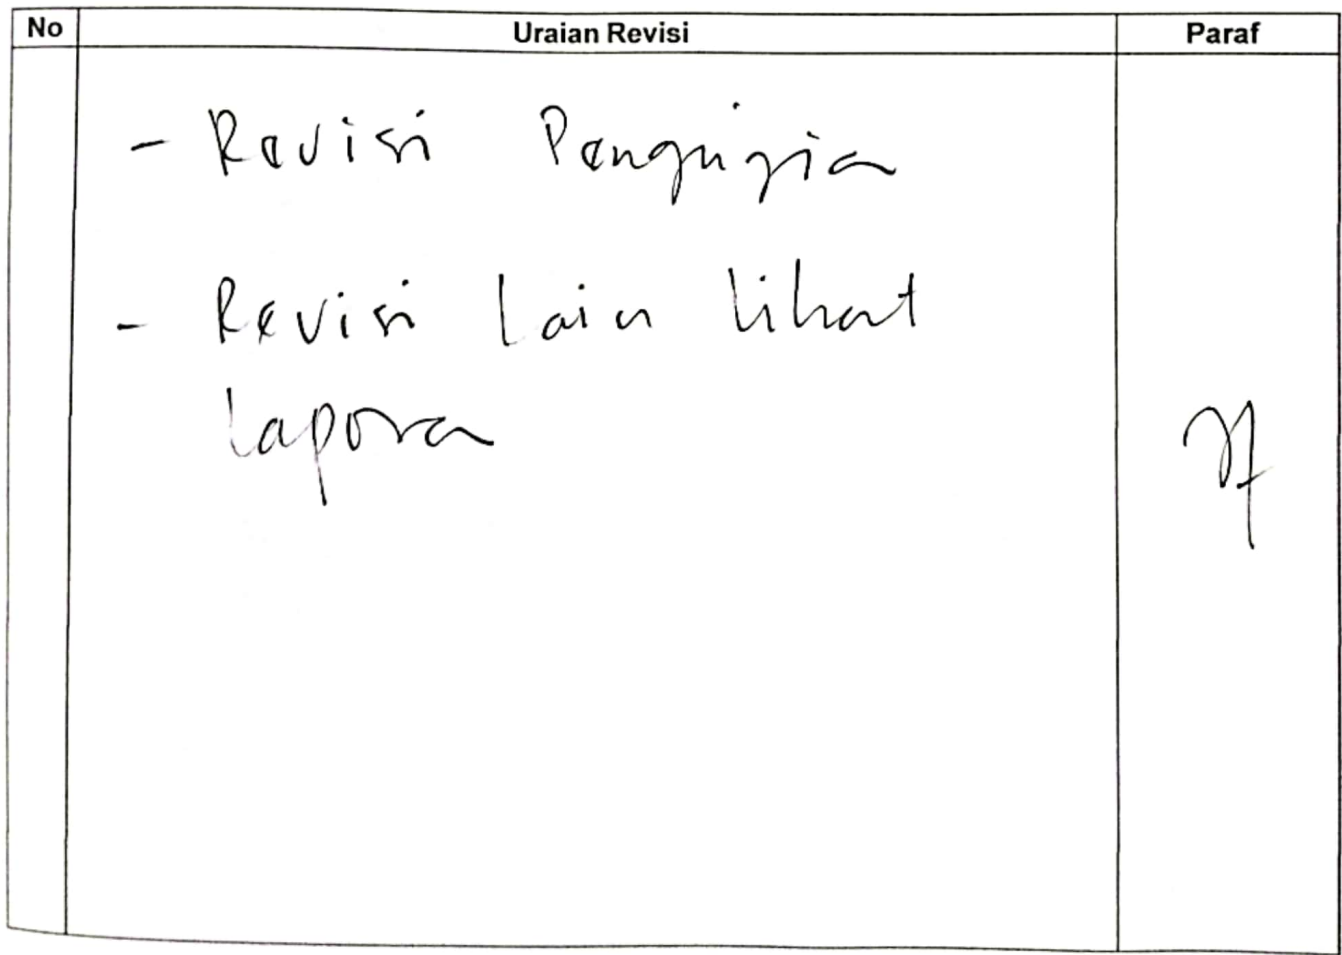 No Uraian Revisi Paraf
- Revisi Pengujian
- Revisi Lain lihat
laporan